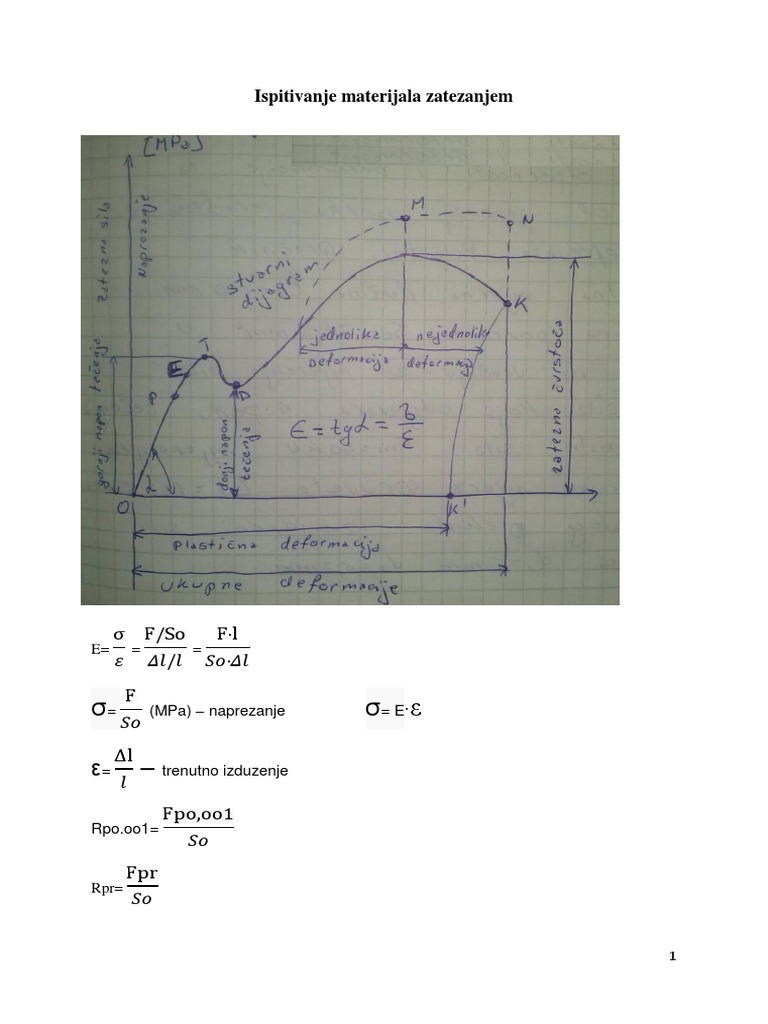 Ispitivanje materijala zatezanjem
[MPa]
zatezna sila
Naprezanje
M
N
stvarni
dijagram
T
K
E
jednolika
deformacija
nejednolik
deformacija
zatezna čvrstoća
gornji napon tečenja
donji napon
tečenja
E = tgα = σ/ε
α
O
K'
plastična deformacija
ukupne deformacije
E= σ/ε = F/So / Δl/l = F·l / So·Δl
σ= F/So (MPa) – naprezanje σ= E·ε
ε= Δl/l – trenutno izduzenje
Rpo.oo1= Fpo,oo1/So
Rpr= Fpr/So
1